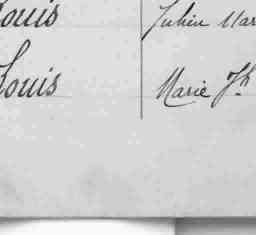 Louis Julien Mar
Louis Marie Jh